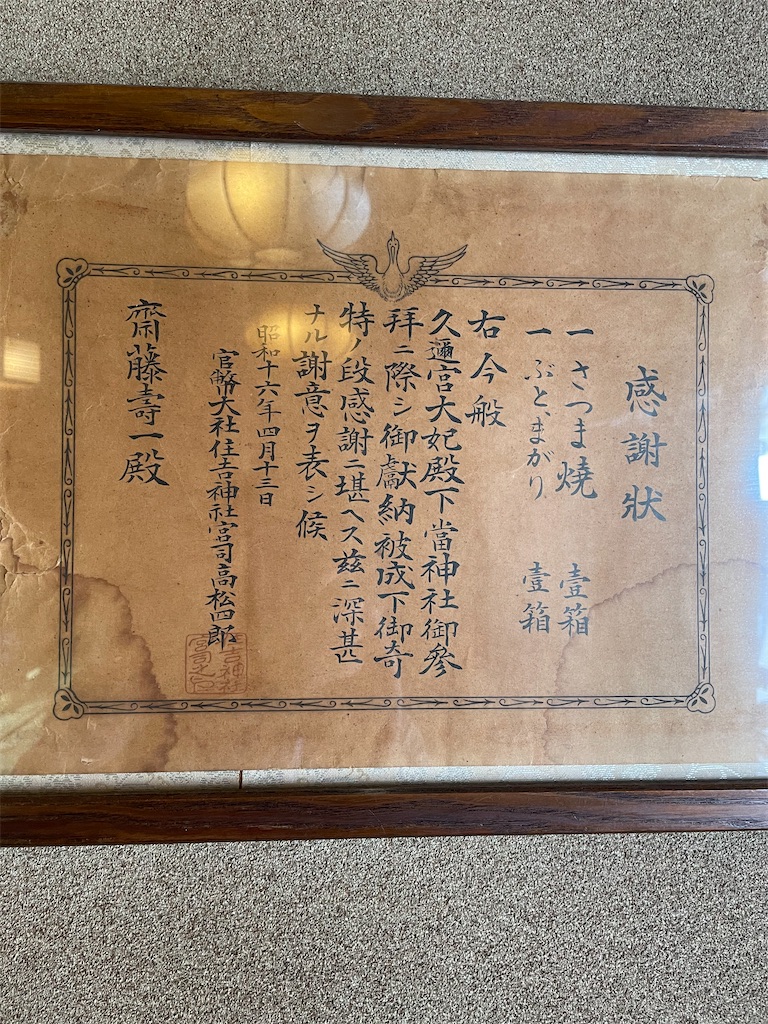 感謝狀
一 さつま燒 壹箱
一 ぶと、まがり 壹箱
右今般
久邇宮大妃殿下當神社御參
拜ニ際シ御獻納被成下御奇
特ノ段感謝ニ堪ヘス茲ニ深甚
ナル謝意ヲ表シ候
昭和十六年四月十三日
官幣大社住吉神社宮司高松四郎
住吉神社
宮司之印
齋藤壽一殿